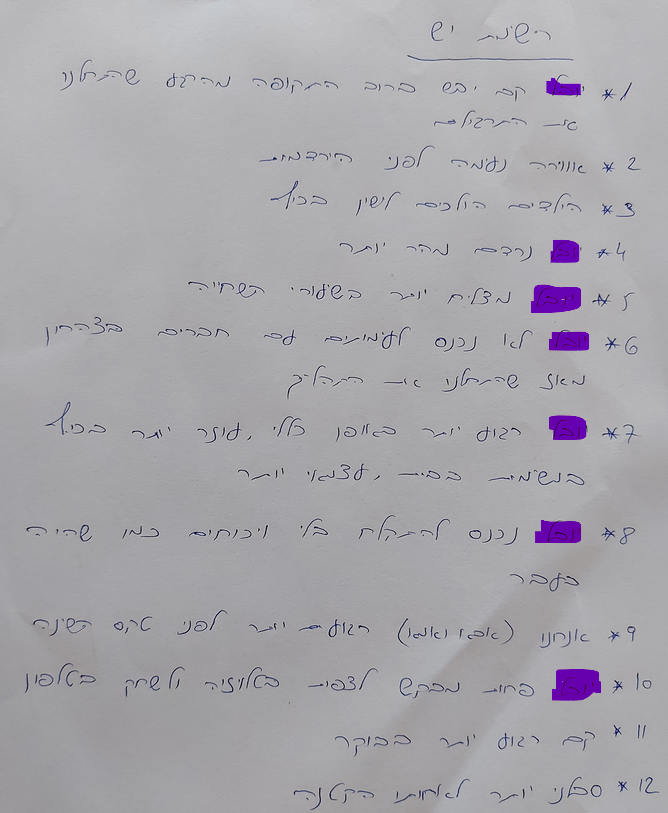 רשימת יש
*1 קם יבש ברוב התקופה מהרגע שהתחלנו
את התרגילים
*2 אווירה נעימה לפני הירדמות
*3 הילדים הולכים לישון בכיף
*4 נרדם מהר יותר
*5 מצליח יותר בשיעורי השחייה
*6 לא נכנס לעימותים עם חברים בצהרון
מאז שהתחלנו את התהליך
*7 רגוע יותר באופן כללי, עוזר יותר בכיף
במשימות בבית, עצמאי יותר
*8 נכנס להתקלח בלי ויכוחים כמו שהיה
בעבר
*9 אנחנו (אבא ואמא) רגועים יותר לפני טקס השינה
*10 פחות מבקש לצפות בטלויזיה ולשחק בטלפון
*11 קם רגוע יותר בבוקר
*12 סבלני יותר לאחותו הקטנה